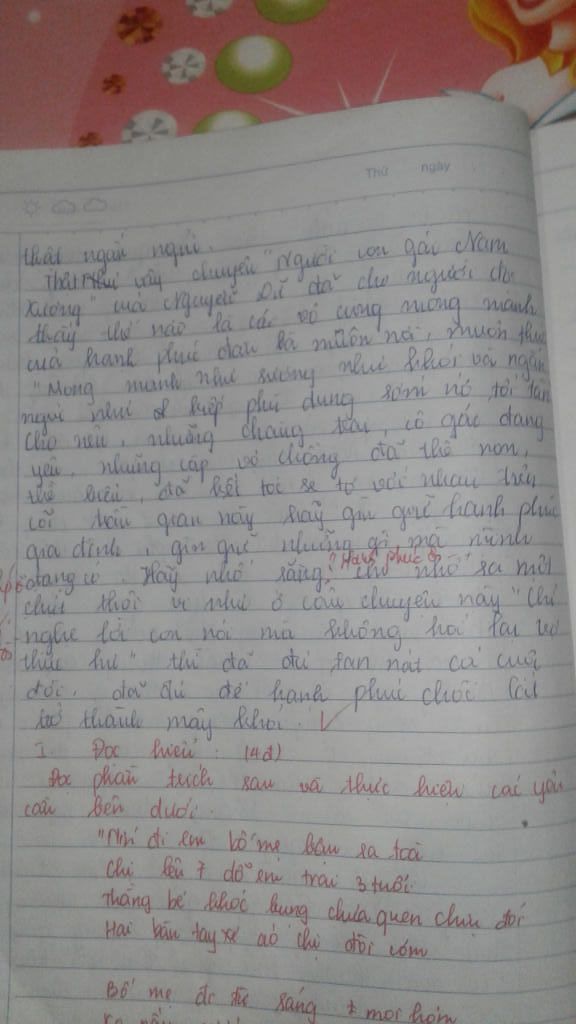 Thứ ngày
thật ngắn ngủi.
Thật như vậy chuyện "Người con gái Nam
Xương" của Nguyễn Dữ đã cho người đọc
thấy thế nào là cái vô cùng mong manh
của hạnh phúc đàn bà muôn nơi, muôn thuở
"Mong manh như sương như khói và ngắn
ngủi như kiếp phù dung sớm nở, tối tàn
Cho nên, những chàng trai, cô gái đang
yêu, những cặp vợ chồng đã thề non,
thề biển, đã kết tóc se tơ với nhau trên
cõi trần gian này hãy gìn giữ hạnh phúc
gia đình, gìn giữ những gì mà mình
đang có. Hãy nhớ rằng, "Hạnh phúc chỉ nhỡ sa một
chút thôi ví như ở câu chuyện này "Chỉ
nghe lời con nói mà không hỏi lại vợ
thực hư" thì đã đủ tan nát cả cuộc
đời, đã đủ để hạnh phúc
trở thành mây khói.
I. Đọc hiểu: (4đ)
Đọc phần trích sau và thực hiện các yêu
cầu bên dưới.
"Nhớ đi em bố mẹ bán sa
Chị lên 7 dỗ em trai 3 tuổi
Thằng bé khóc bụng chưa quen chịu đói
Hai bàn tay áo chị đòi cơm
Bố mẹ đi từ sáng mọi hôm